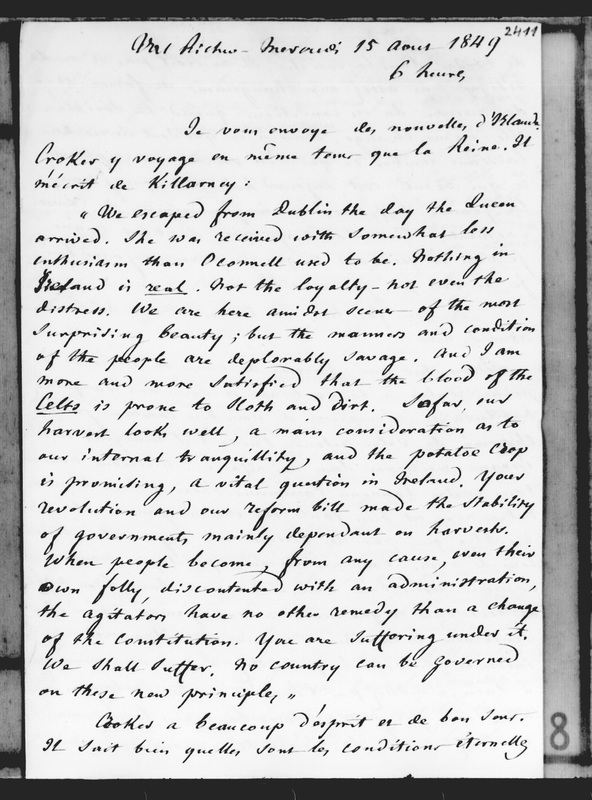 2411
Val Richer - Mercredi 15 aout 1849
6 heures
Je vous envoye des nouvelles d'Irlande.
Croker y voyage en même tems que la Reine. Il
m'écrit de Killarney :
" We escaped from Dublin the day the Queen
arrived. She was received with somewhat less
enthusiasm than Oconnell used to be. Nothing in
Ireland is real. Not the loyalty - not even the
distress. We are here amidst scenes of the most
surprising beauty ; but the manners and condition
of the people are deplorably savage. And I am
more and more satisfied that the blood of the
Celts is prone to sloth and dirt. So far, our
harvest looks well, a main consideration as to
our internal tranquillity, and the potatoe crop
is promising, a vital question in Ireland. Your
revolution and our reform bill made the stability
of governments mainly dependant on harvests.
When people become, from any cause, even their
own folly, discontented with an administration,
the agitators have no other remedy than a change
of the Constitution. You are suffering under it.
We shall suffer. No country can be governed
on these new principles "
Croker a beaucoup d'esprit et de bon sens.
Il sait bien quelles sont les conditions éternelles
8